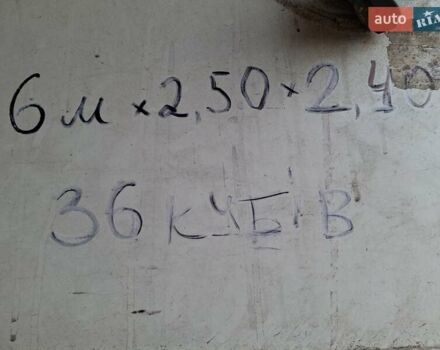 auto RIA
6 м x 2,50 x 2,40
36 кубів